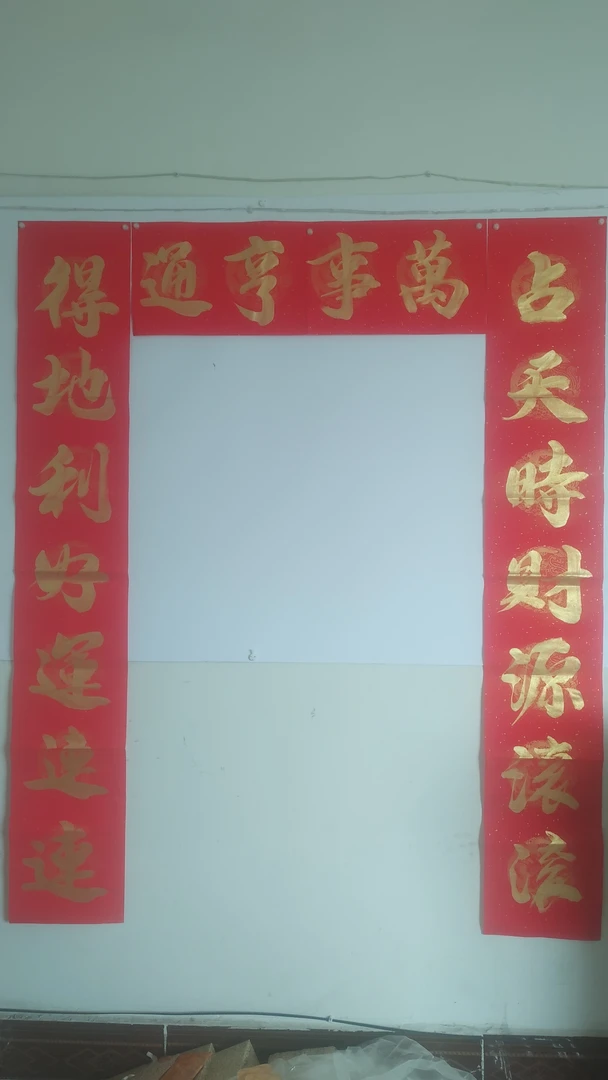 占天時財源滚滚
得地利好運連連
萬事亨通